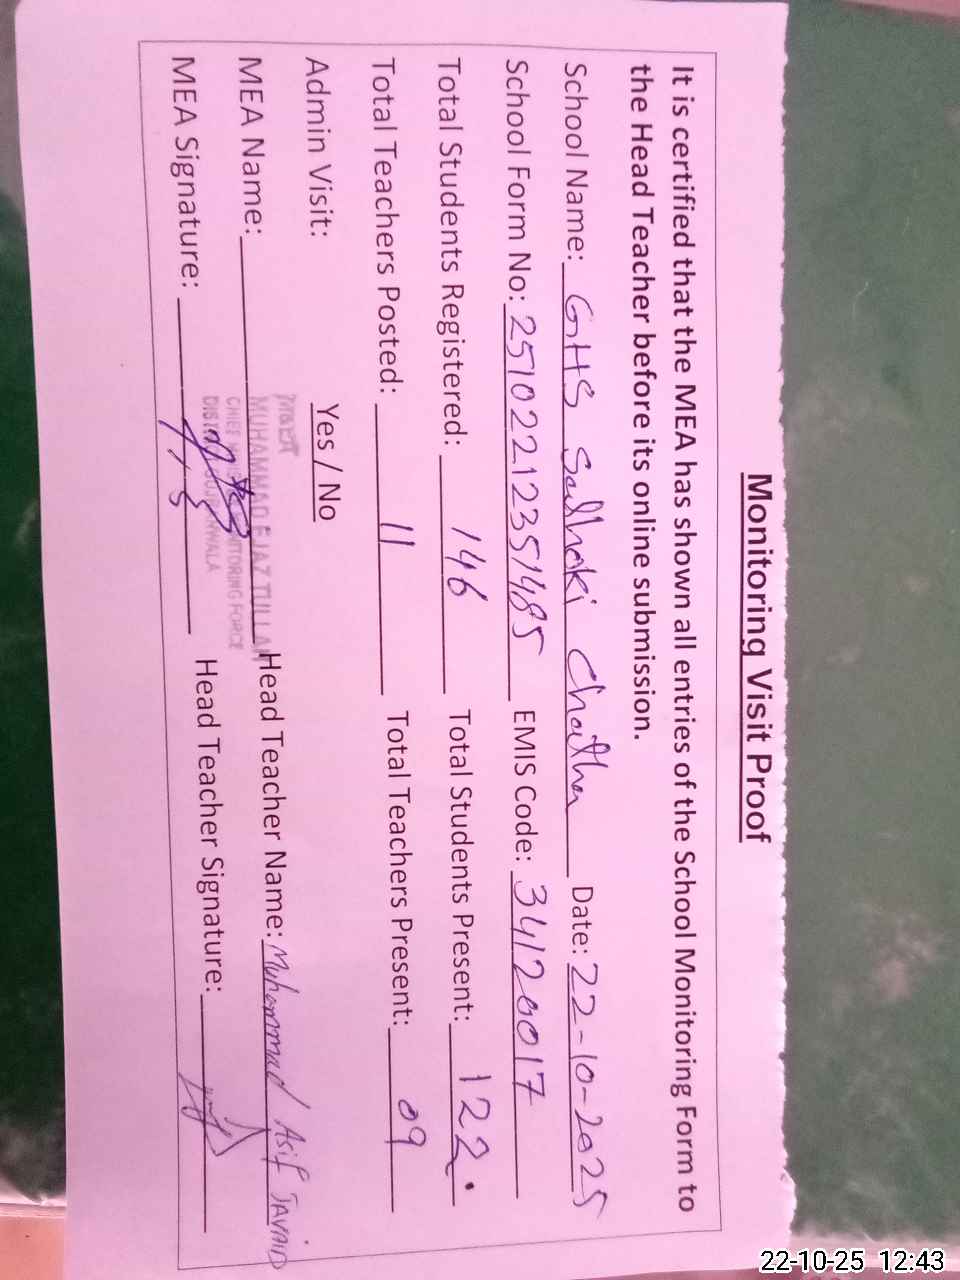 Monitoring Visit Proof
It is certified that the MEA has shown all entries of the School Monitoring Form to
the Head Teacher before its online submission.
School Name: GHS Sadhoki Chatha Date: 22-10-2025
School Form No: 25102212351485 EMIS Code: 34120017
Total Students Registered: 146 Total Students Present: 122
Total Teachers Posted: 11 Total Teachers Present: 09
Admin Visit: Yes / No
MEA Name: MUHAMMAD EJAZ TULLAH Head Teacher Name: Muhammad Asif JAVAID
CHIEF MINISTER MONITORING FORCE
MEA Signature: Head Teacher Signature:
22-10-25 12:43